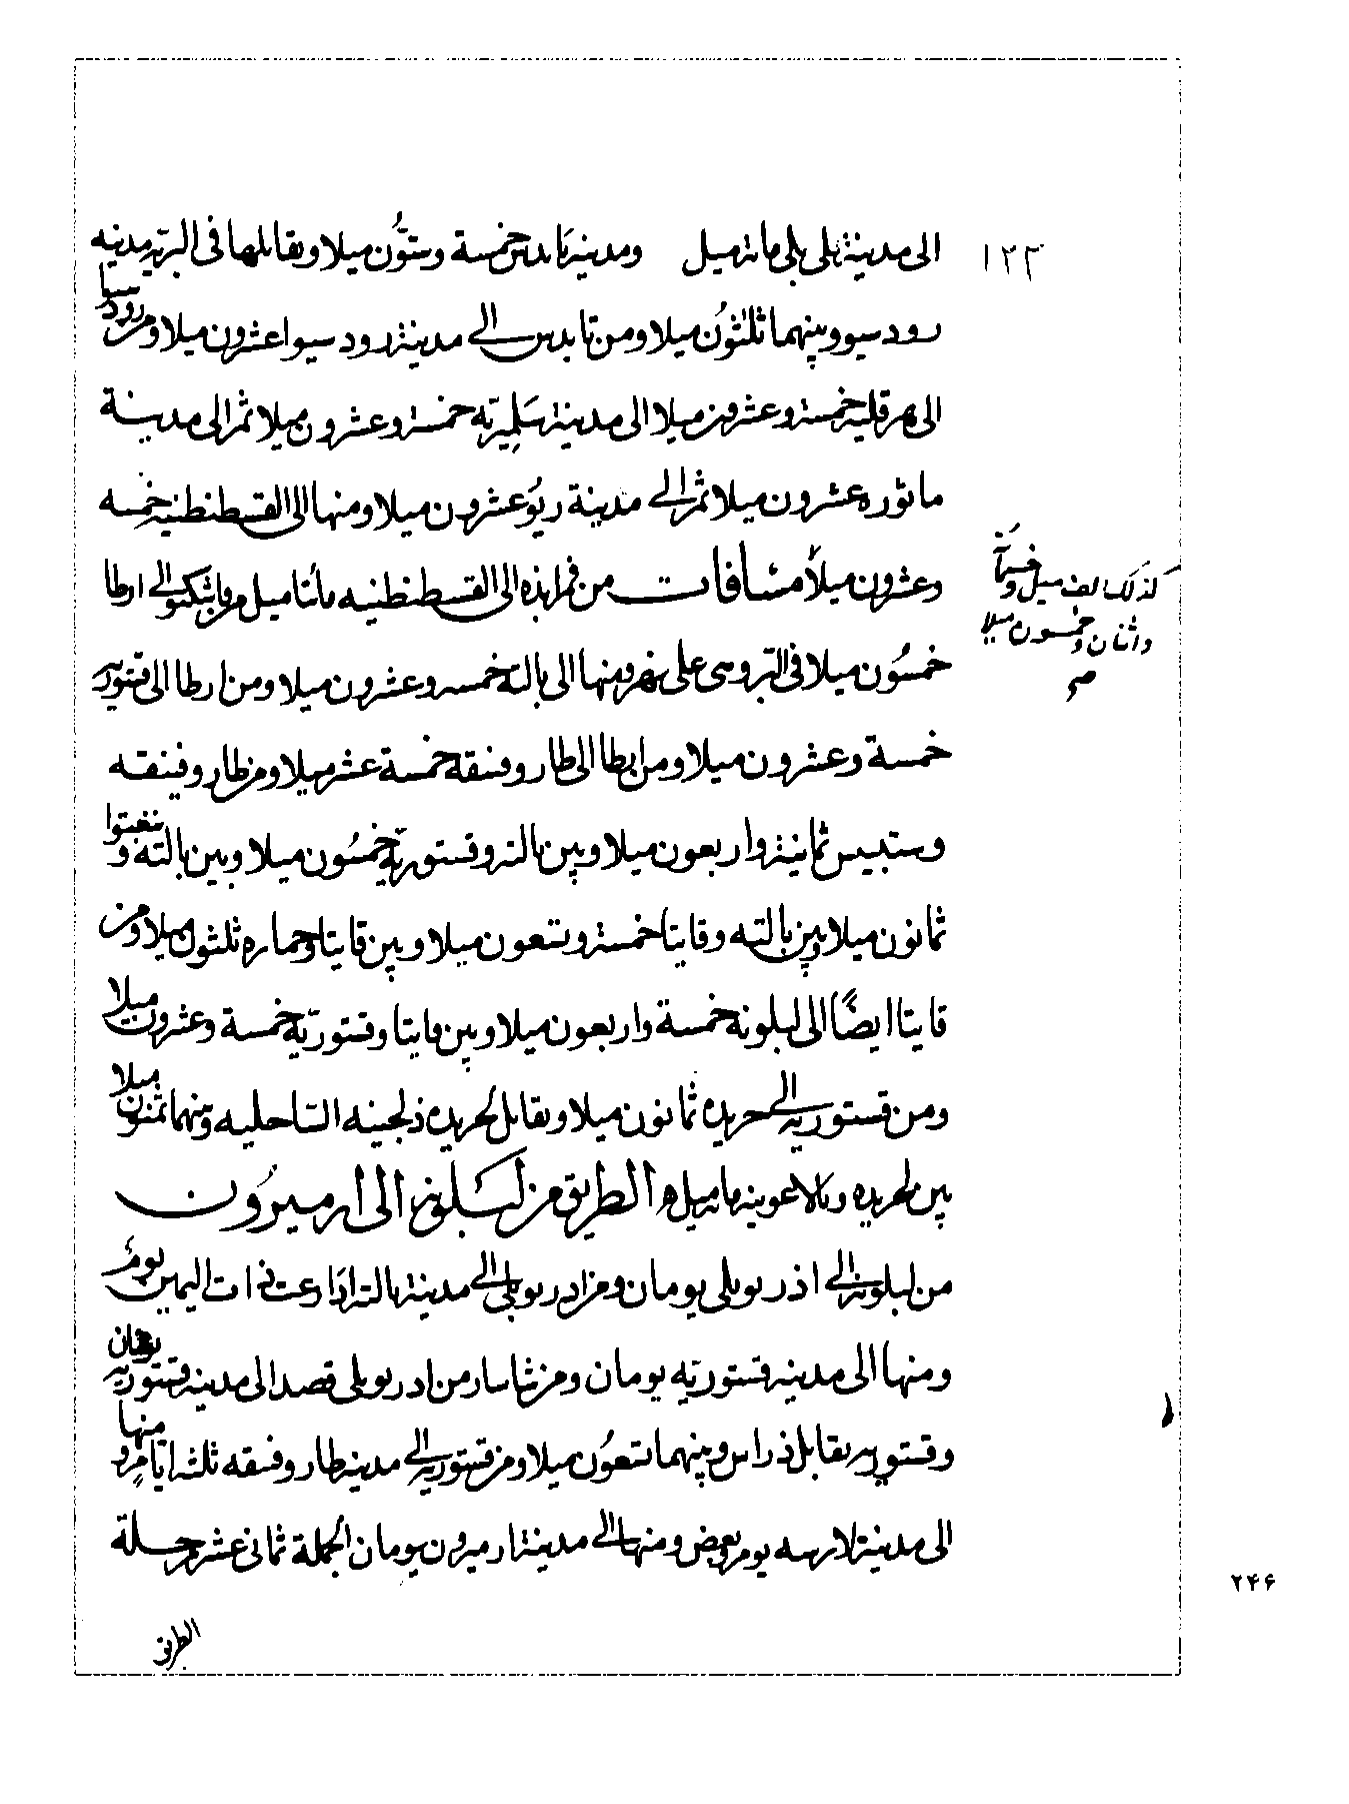 ١٢٢
الى مدينة بلى بلى مائة ميل ومدينة بابدس خمسة وستون ميلا ويقابلها فى البرية مدينه
رودسيوو بينهما ثلثون ميلا ومن تابدس الى مدينة رودسيوا عشرون ميلا ومن رودسيا
الى هرقلية خمسة وعشرون ميلا الى مدينة سلميريه خمسة وعشرون ميلا ثم الى مدينة
ماثوره عشرون ميلا ثم الى مدينة ريو عشرون ميلا ومنها الى القسطنطنيه خمسه
وعشرون ميلا مسافات من قرابذه الى القسطنطنيه مائتا ميل من الى ارطا
كذلك الف ميل وخمسمائة
واثنان وخمسون ميلا
صح
خمسون ميلا فى البر وسى على نهر ومنها الى بالته خمسه وعشرون ميلا ومن ارطا الى قستوريه
خمسة وعشرون ميلا ومن ابطا الى طاروفنقه خمسة عشر ميلا ومن طاروفينقه
وستبيس ثمانية واربعون ميلا وبين بالته وقستورية خمسون ميلا وبين بالته و
ثمانون ميلا وبين بالته وقايتا خمسة وتسعون ميلا وبين قايتا وجماره ثلثون ميلا ومن
قايتا ايضا الى لبلونة خمسة واربعون ميلا وبين قايتا وقستورية خمسة وعشرون ميلا
ومن قستوريه الى حريده ثمانون ميلا ويقابل لحريده ذلجينه الساحليه وبينهما ثمنون ميلا
بين لحريده وبالاعوينه مائة ميل ه الطريق من لبلونه الى ارميرون
من لبلونة الى اذربوبلى يومان ومن ادربوبلى الى مدينة بالته اذا رعت ذات اليمين يوم
ومنها الى مدينه قستوريه يومان ومن شا سار من ادربوبلى قصد الى مدينة قستوريه يومان
وقستوريه يقابل ذراس وبينهما تسعون ميلا ومن قستوريه الى مدينه طاروفنقه ثلثة ايام ومنها
الى مدينة لارسه يوم وبعض ومنها الى مدينة ارميرون يومان الجملة ثمانى عشر مرحلة
الطريق
٢۴۶